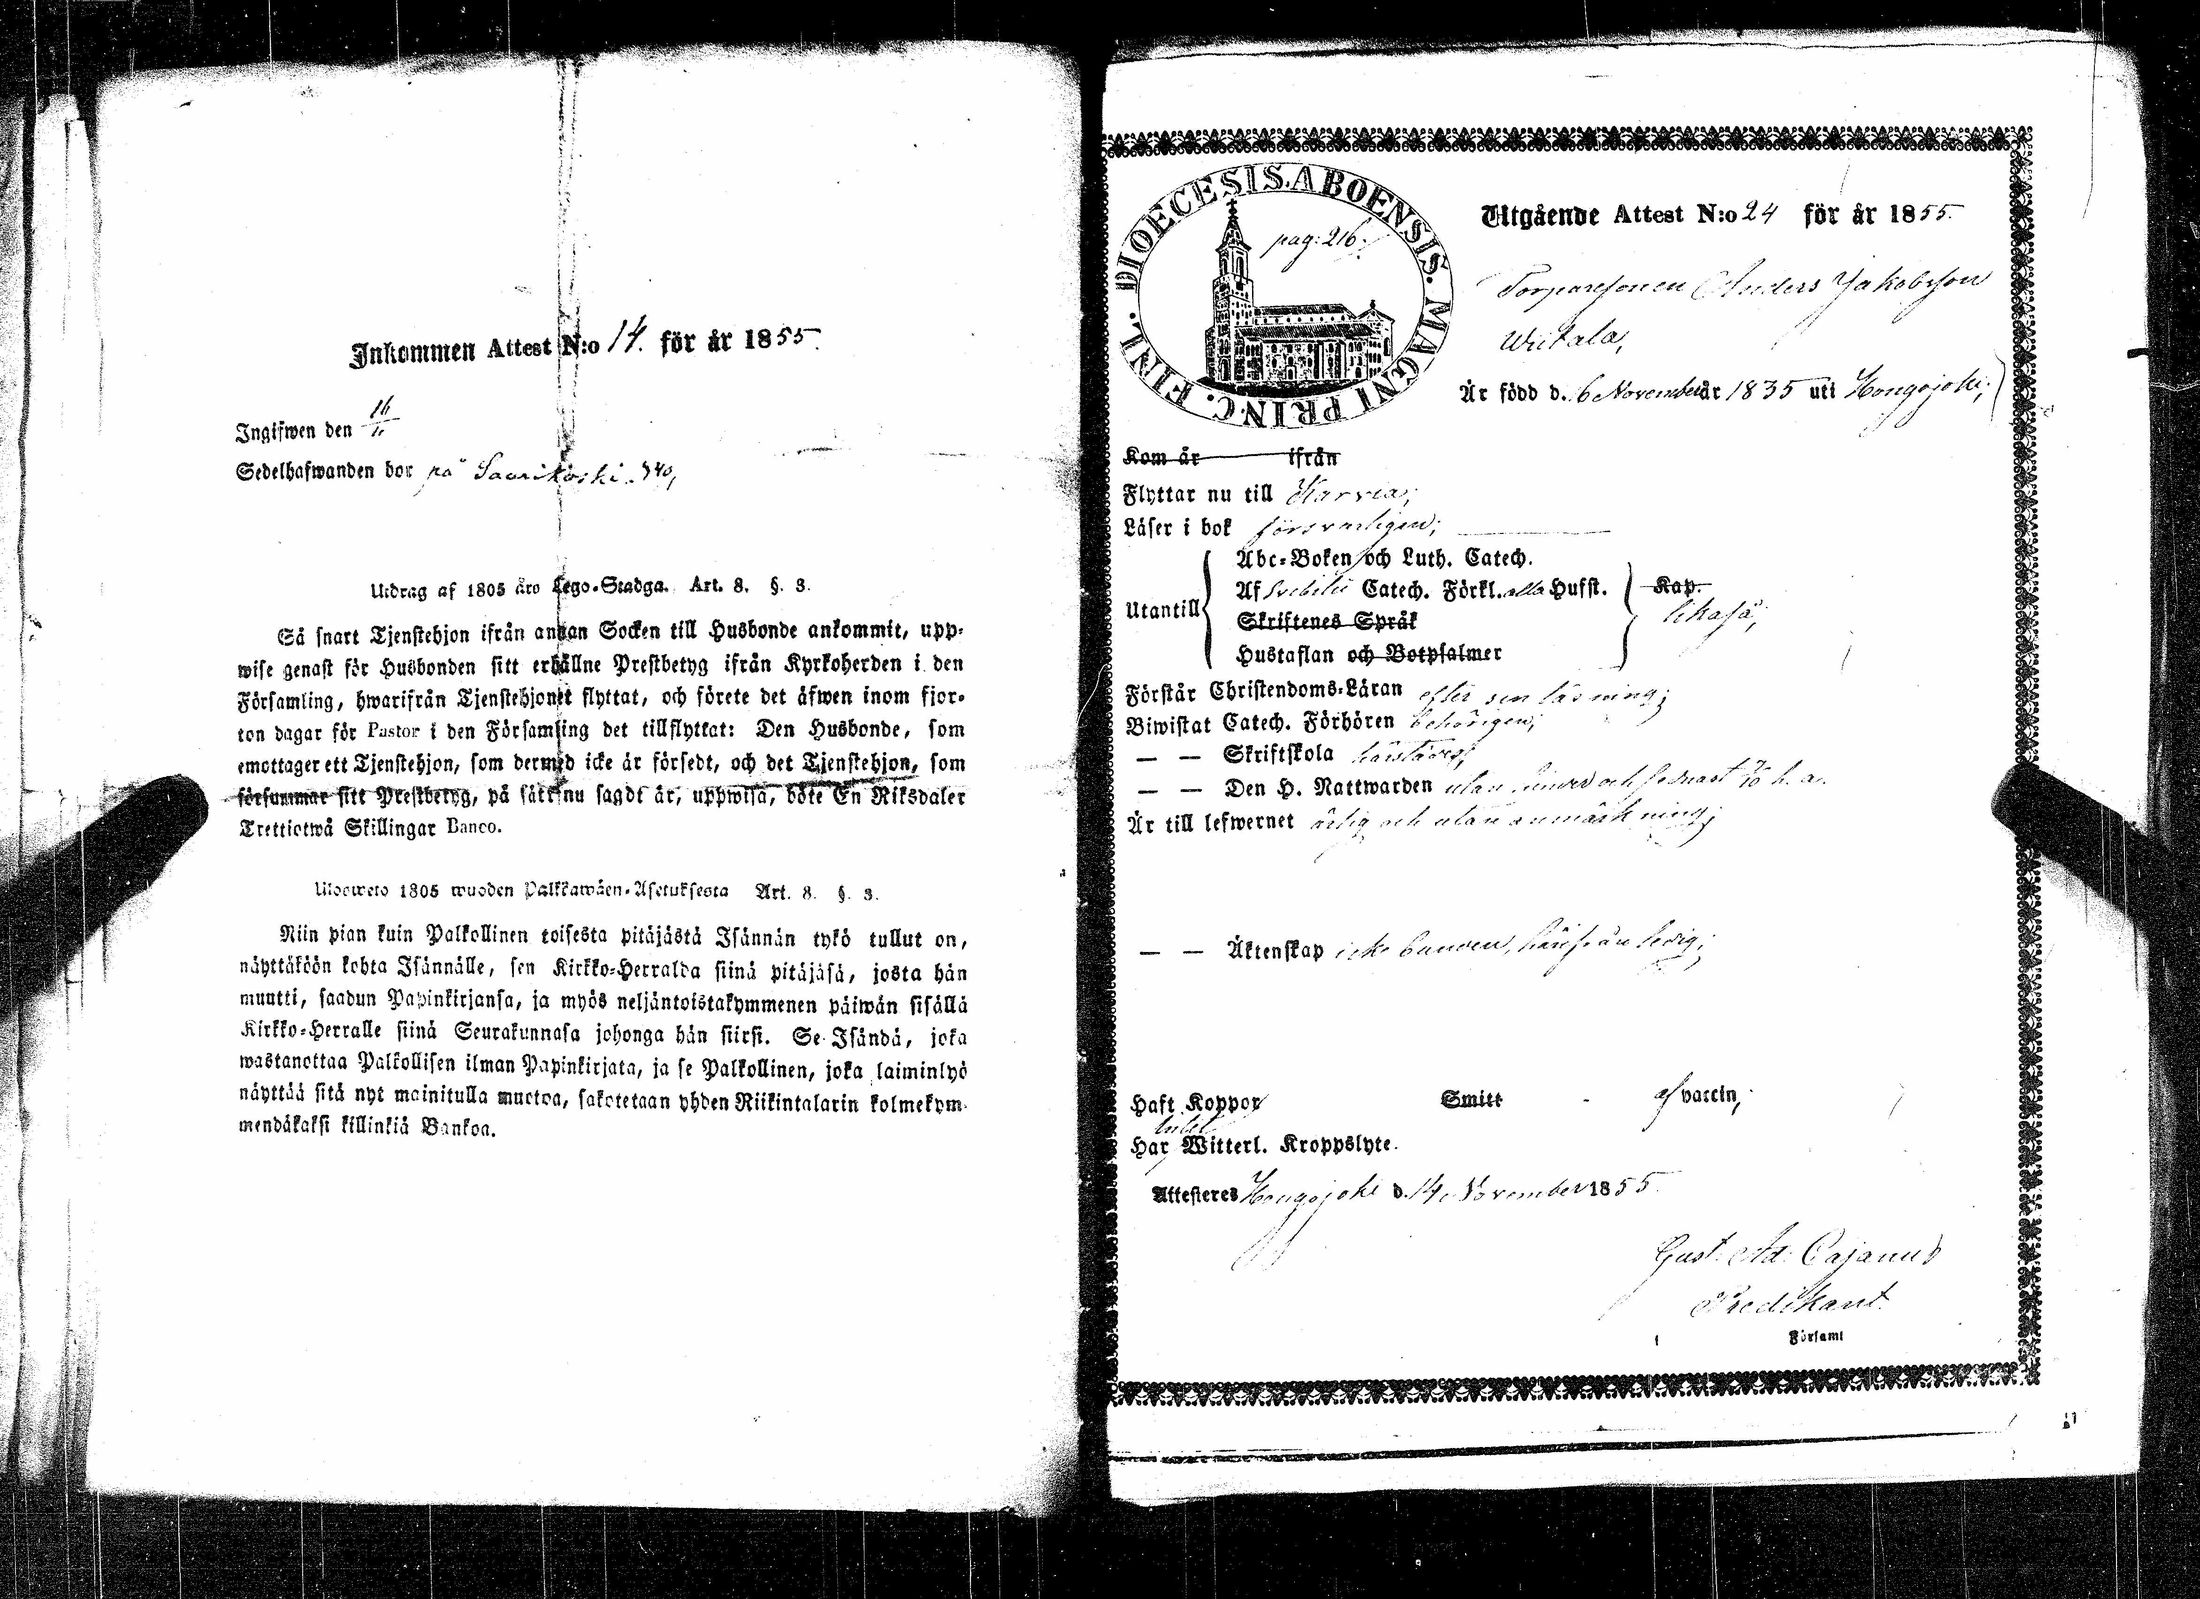 Inkommen Attest N:o 14. för år 1855.
Ingifwen den 16/11
Sedelhafwanden bor på Saarikoski.
Utdrag af 1805 års Lego-Stadga. Art. 8. §. 3.
Så snart Tjenstehjon ifrån annan Socken till Husbonde ankommit, upp-
wise genast för Husbonden sitt erhållne Prestbetyg ifrån Kyrkoherden i den
Församling, hwarifrån Tjenstehjonet flyttat, och förete det äfwen inom fjor-
ton dagar för Pastor i den Församling det tillflyttat: Den Husbonde, som
emottager ett Tjenstehjon, som dermed icke är försedt, och det Tjenstehjon, som
försummar sitt Prestbetyg, på sätt nu sagdt är, uppwisa, böte En Riksdaler
Trettiotwå Skillingar Banco.
Ulosweto 1805 wuoden Palkkawäen-Asetuksesta Art. 8. §. 3.
Niin pian kuin Palkollinen toisesta pitäjästä Isännän tykö tullut on,
näyttäköön kohta Isännälle, sen Kirkko-Herralda siinä pitäjäsä, josta hän
muutti, saadun Papinkirjansa, ja myös neljäntoistakymmenen päiwän sisällä
Kirkko-Herralle siinä Seurakunnasa johonga hän siirsi. Se Isändä, joka
wastanottaa Palkollisen ilman Papinkirjata, ja se Palkollinen, joka laiminlyö
näyttää sitä nyt mainitulla muotoa, sakotetaan yhden Riikintalarin kolmekym-
mendäkaksi killinkiä Bankoa.
DIOECESIS. ABOENSIS. MAGNI PRINC. FINL.
pag: 216.
Utgående Attest N:o 24 för år 1855.
Torparesonen Anders Jakobsson
Wiitala,
Är född d. 6 November år 1835 uti Hongojoki;
Kom år ifrån
Flyttar nu till Karvia;
Läser i bok försvarligen;
Utantill
Abc-Boken och Luth. Catech.
Af Svebilii Catech. Förkl. alla Hufst.
Skriftenes Språk
Hustaflan och Botpsalmer
Kap.
likaså;
Förstår Christendoms-Läran efter sin läsning;
Biwistat Catech. Förhören behörigen;
— — Skriftskola härstädes;
— — Den H. Nattwarden utan hinder och senast 7/10 h. a.
Är till lefwernet ärlig och utan anmärkning;
— — Äktenskap icke bunden, härifrån ledig;
Haft Koppor Smitt af vaccin;
intet
Har Witterl. Kroppslyte.
Attesteres Hongojoki d. 14 November 1855.
Gust. Ad. Cajanus
Predikant.
Församl